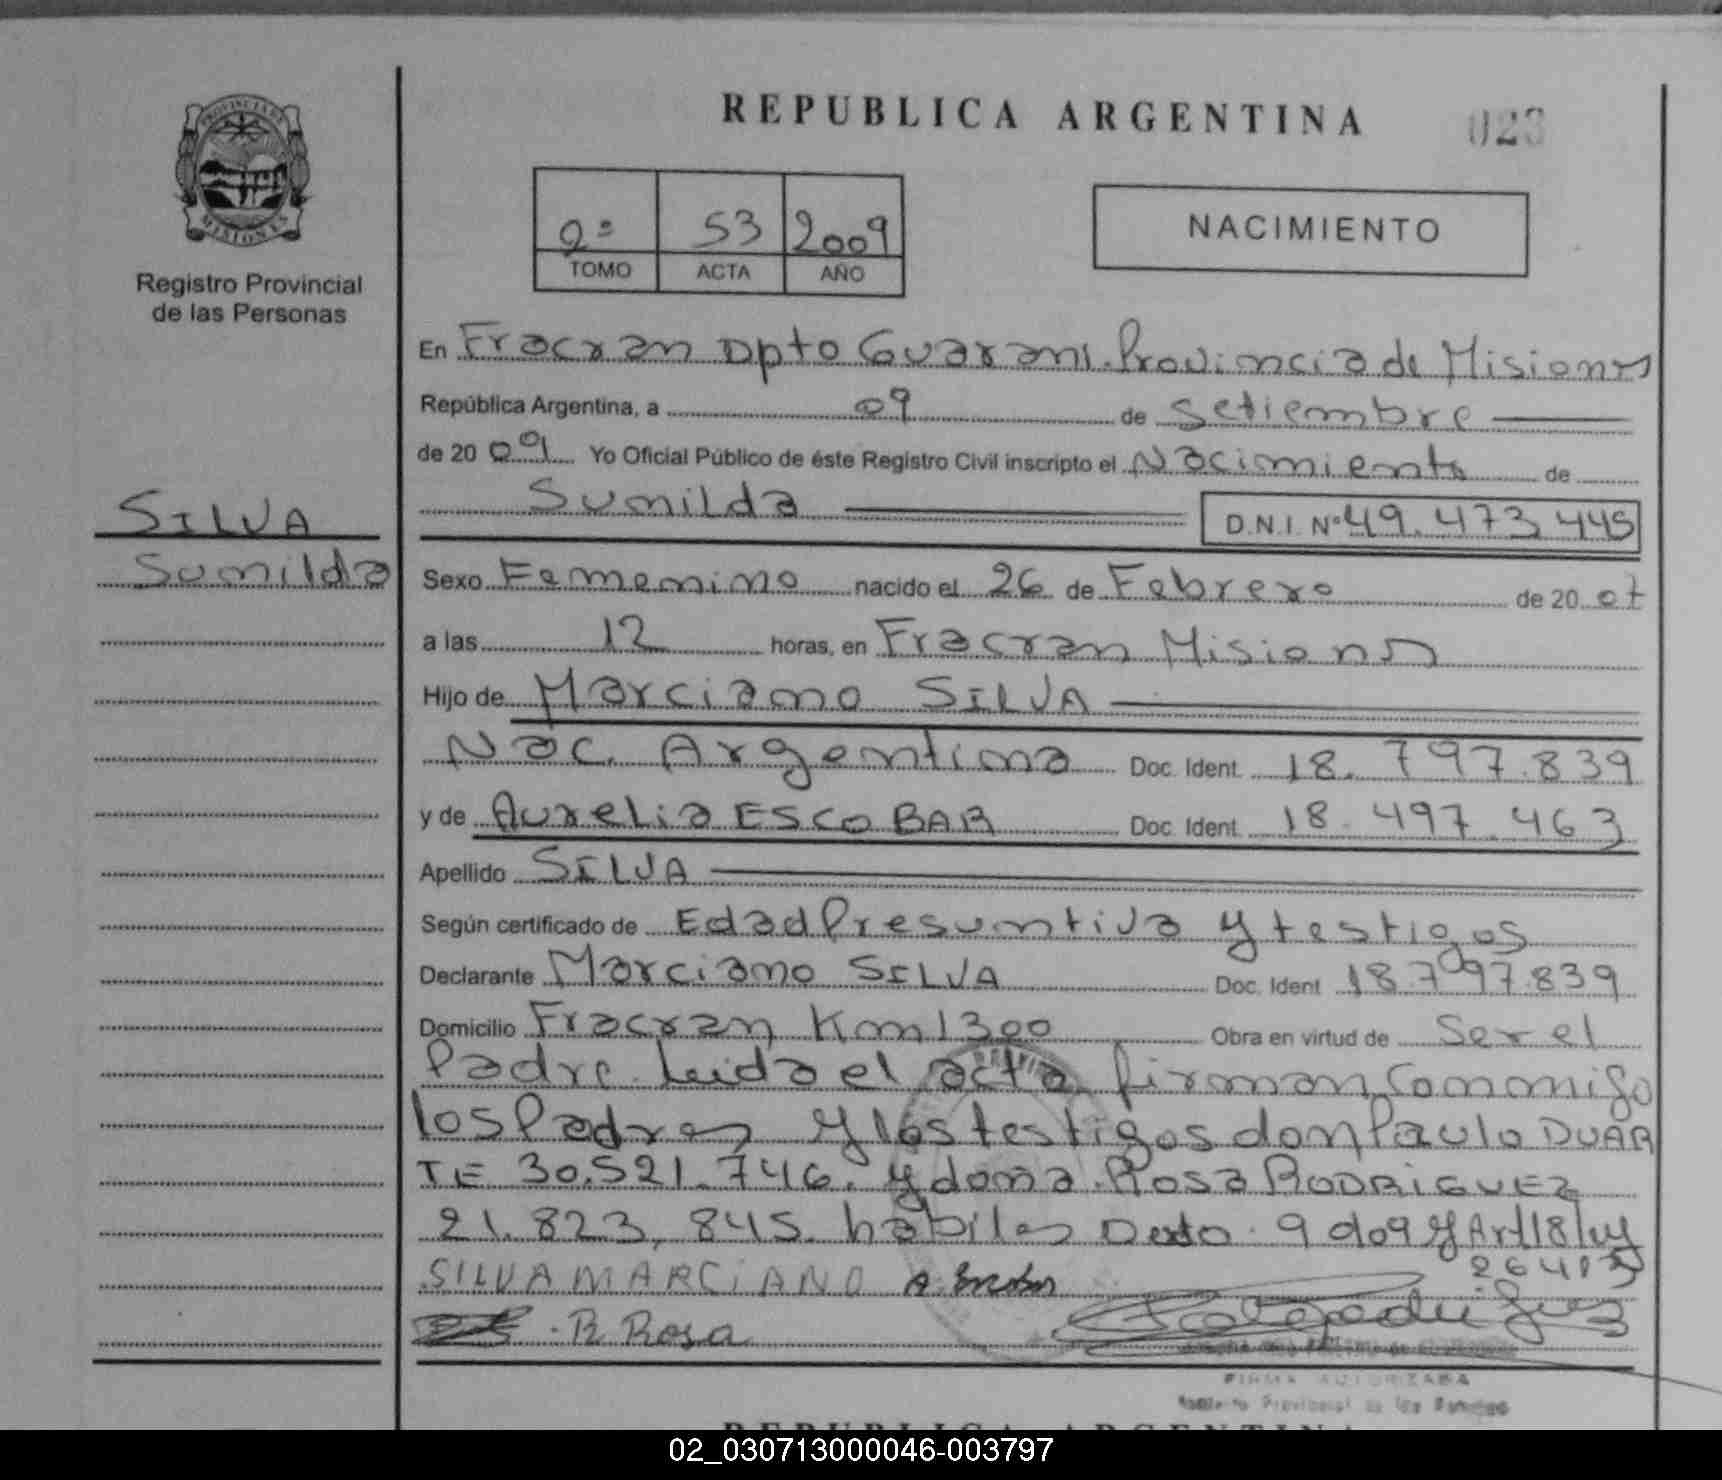 REPUBLICA ARGENTINA
023
PROVINCIA DE
MISIONES
Registro Provincial
de las Personas
2º 53 2009
TOMO ACTA AÑO
NACIMIENTO
En Fracran Dpto Guarani. Provincia de Misiones
República Argentina, a 09 de Setiembre
de 20 09 Yo Oficial Público de éste Registro Civil inscripto el Nacimiento de
Sunilda D.N.I. Nº 49.473 445
SILVA
Sunilda
Sexo Femenino nacido el 26 de Febrero de 20 07
a las 12 horas, en Fracran Misiones
Hijo de Marciano SILVA
Nac. Argentina Doc. Ident. 18.797.839
y de Aurelia ESCOBAR Doc. Ident. 18.497.463
Apellido SILVA
Según certificado de Edad Presuntiva y testigos
Declarante Marciano SILVA Doc. Ident 18.797.839
Domicilio Fracran Km 1300 Obra en virtud de Ser el
Padre. Leida el acta firman Conmigo
los Padres y los testigos don Paulo DUAR
TE 30.521.746. y dona Rosa RODRIGUEZ
21.823,845. habiles Dcto. 9 y Art 18 ley
26413
SILVA MARCIANO A.
R Rosa
FIRMA AUTORIZADA
Registro Provincial de las Personas
REPUBLICA ARGENTINA
02_030713000046-003797